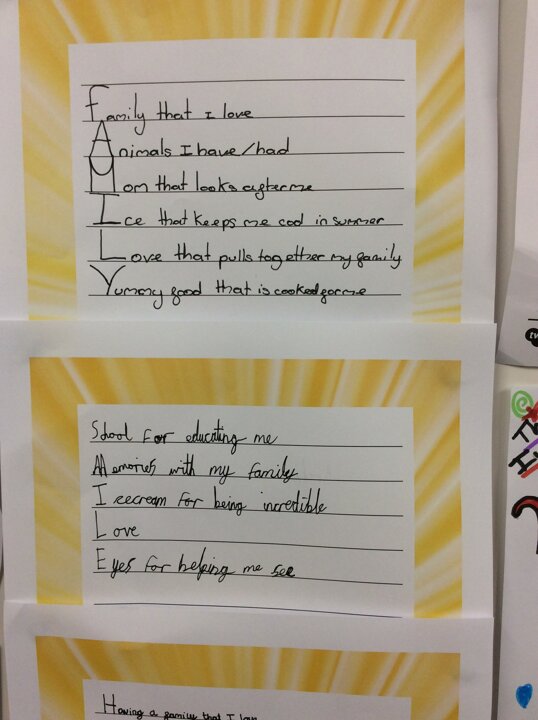 Family that I love
Animals I have/had
Mom that looks after me
Ice that keeps me cool in summer
Love that pulls together my family
Yummy food that is cooked for me
School for educating me
Memories with my family
Icecream for being incredible
Love
Eyes for helping me see
Having a family that I